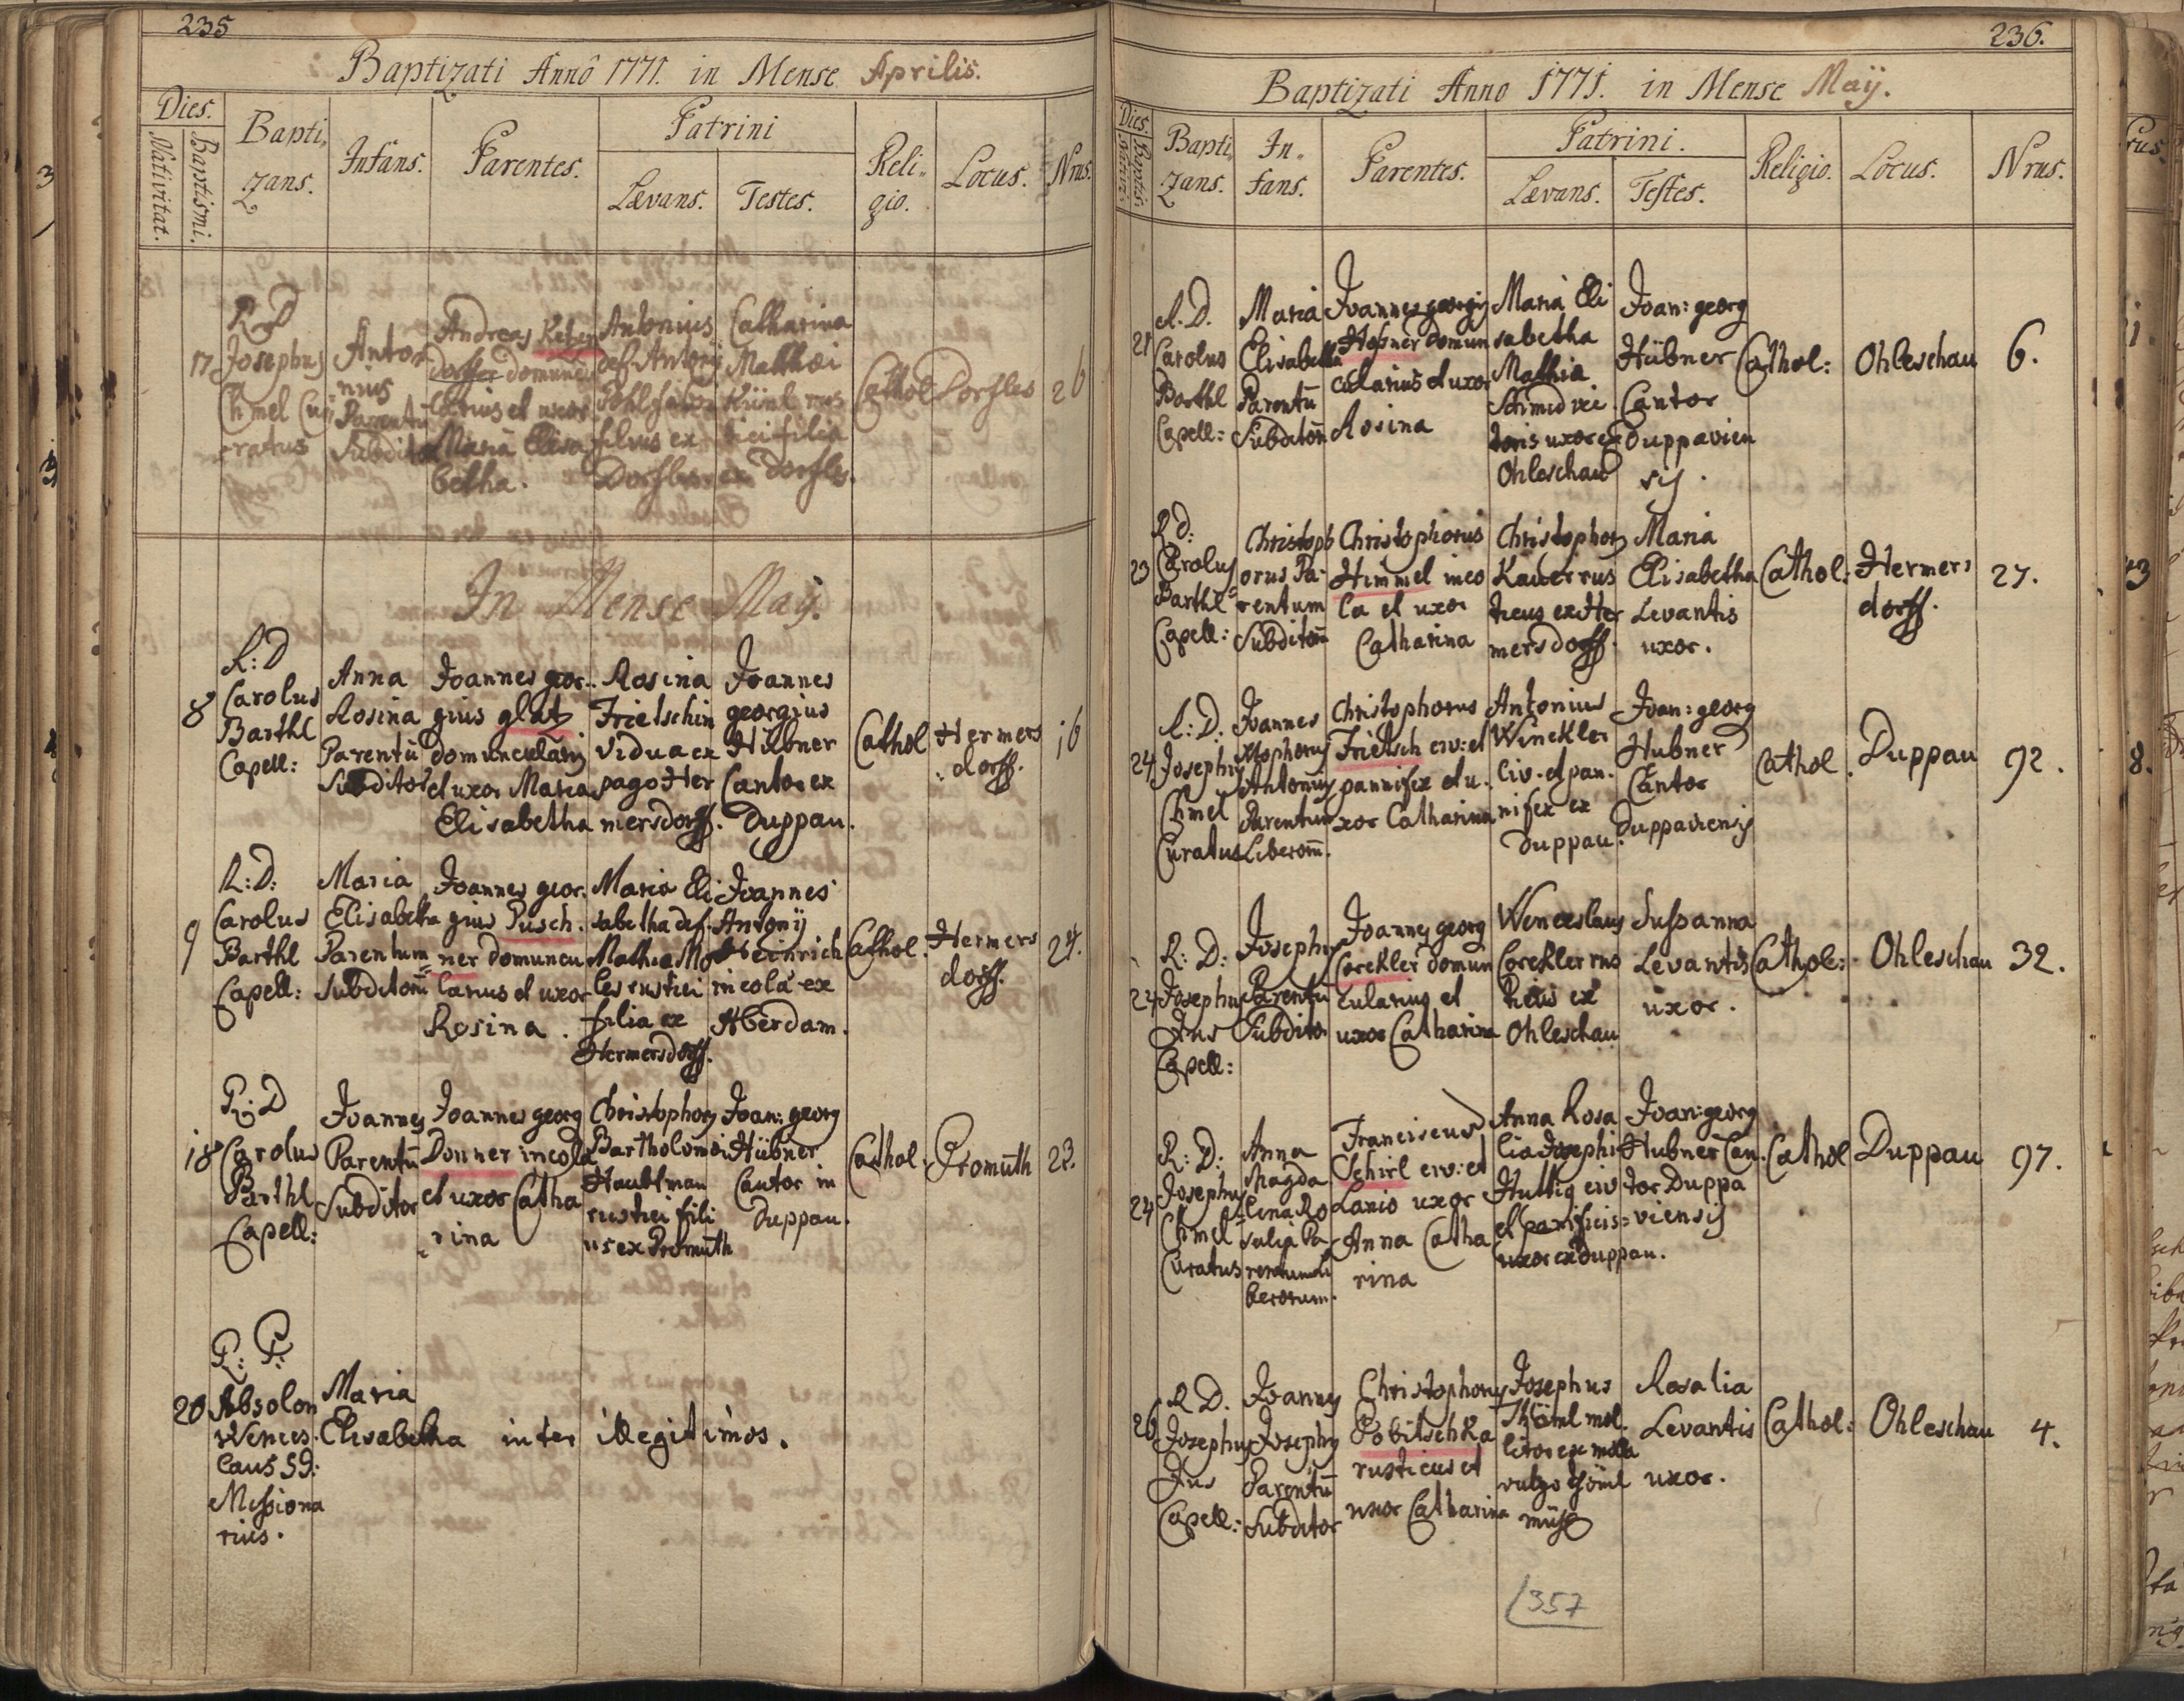 235
Baptizati Annô 1771. in Mense Aprilis.
Dies.
Nativitat.
Baptismi.
Bapti,
zans.
Infans.
Parentes.
Patrini
Lævans.
Testes.
Reli-
gio.
Locus.
Nrus.
17
R D
Josephus
Chmel Cu
ratus
Anto
nius
Parentū
Subdito
Andreas
dorffer domuncu
larius et uxor
Maria Elisa
betha.
Antonius
def. Antonij
filius ex
Catharina
Mathæi
rus
tici filia
ex Dorfles.
Cathol
Dorfles
26
In Mense May.
8
R: D
Carolus
Barthl
Capell:
Anna
Rosina
Parentū
Subditor
Joannes geor-
gius glatz
domuncularij
et uxor Maria
Elisabetha
Rosina
Frietschin
vidua ex
pago Her
mersdorff.
Joannes
georgius
Hübner
Cantor ex
Duppau.
Cathol
Hermers
dorff.
16
9
R: D:
Carolus
Barthl
Capell:
Maria
Elisabetha
Parentum
Subditorū
Joannes geor.
gius Püsch.
ner domuncu
larius et uxor
Rosina.
Maria Eli
sabetha def.
Mathiæ Mo
les rustici
filia ex
Hermersdorff.
Joannes
Antonij
Heinrich
incola ex
Aberdam.
Cathol.
Hermers
dorff.
24.
18
R: D
Carolus
Barthl
Capell:
Joannes
Parentū
Subditor
Joannes georg
Donner incola
et uxor Catha
rina
Christophorg
Bartholomæi
Haubtman
rustici fili
us ex Promuth
Joan: georg
Hübner
Cantor in
Duppau.
Cathol.
Promuth
23.
20
R: P:
Absolon
Wences.
laus SJ:
Missiona
rius.
Maria
Elisabetha inter illegitimos.
236.
Baptizati Anno 1771. in Mense Maÿ.
Dies.
Bapti,
zans.
In-
fans.
Parentes.
Patrini.
Lævans.
Testes.
Religio.
Locus.
Nrus.
21
R. D.
Carolus
Barthl
Capell:
Maria
Elisabetha
Parentū
Subditorū
Joannes georgij
Hosner domun
cularius et uxor
Rosina
Maria Eli
sabetha
Mathiæ
Schmid vei
toris uxor ex
Ohleschau
Joan: georg
Hübner
Cantor
Duppavien
sis.
Cathol:
Ohleschau
6.
23
R D:
Carolus
Barthl
Capell:
Christoph
orus Pa-
rentum
Subditorū
Christophorus
Himmel inco
la et uxor
Catharina
Christophorg
Kauer rus
ticus ex Her
mersdorff.
Maria
Elisabetha
Levantis
uxor.
Cathol:
Hermers
dorff.
27.
24
R: D:
Josephus
Chmel
Curatus
Joannes
Xtophorus
Antonius
Parentum
Liberorū.
Christophorus
Frietsch civ: et
pannifex et u-
xor Catharina
Antonius
Winckler
Civ. et pan.
nifex ex
Duppau.
Joan: georg
Hubner
Cantor
Duppaviensis
Cathol.
Duppau
92.
24
R: D:
Josephus
Capell:
Josephus
Parentū
Subditor
Joannes georg
Corckler domun
cularius et
uxor Catharina
Wenceslaus
Corckler rus
ticus ex
Ohleschau
Sussanna
Levantis
uxor.
Cathol:
Ohleschau
32.
24
R: D:
Josephus
Chmel
Curatus
Anna
Magda
lena Ro
salia Pa-
rentum Li
berorum.
Franciscus
Tschirl civ: et
Lanio uxor
Anna Catha
rina
Anna Rosa
lia Josephi
Huttig civ
et panificis
uxor ex Duppau.
Joan: georg
Hubner Can.
tor Duppa
viensis
Cathol
Duppau
97.
26
R D.
Josephus
Capell:
Joannes
Josephus
Parentū
Subditor
Christophorus
Pobitschka
rusticus et
uxor Catharina
Josephus
Thöml mol.
litor ex mola
vulgo thöml
mühl
Rosalia
Levantis
uxor.
Cathol:
Ohleschau
4.
357